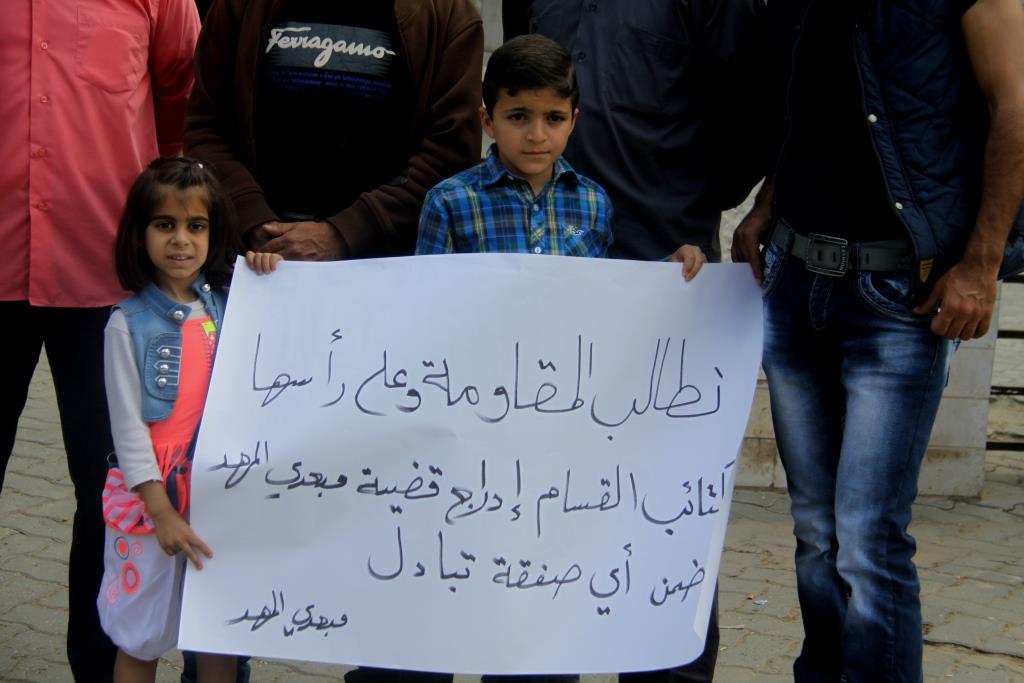 Ferragamo
نطالب المقاومة وعلى رأسها
كتائب القسام إدراج قضية مبعدي المهد
ضمن أي صفقة تبادل
مبعدي المهد